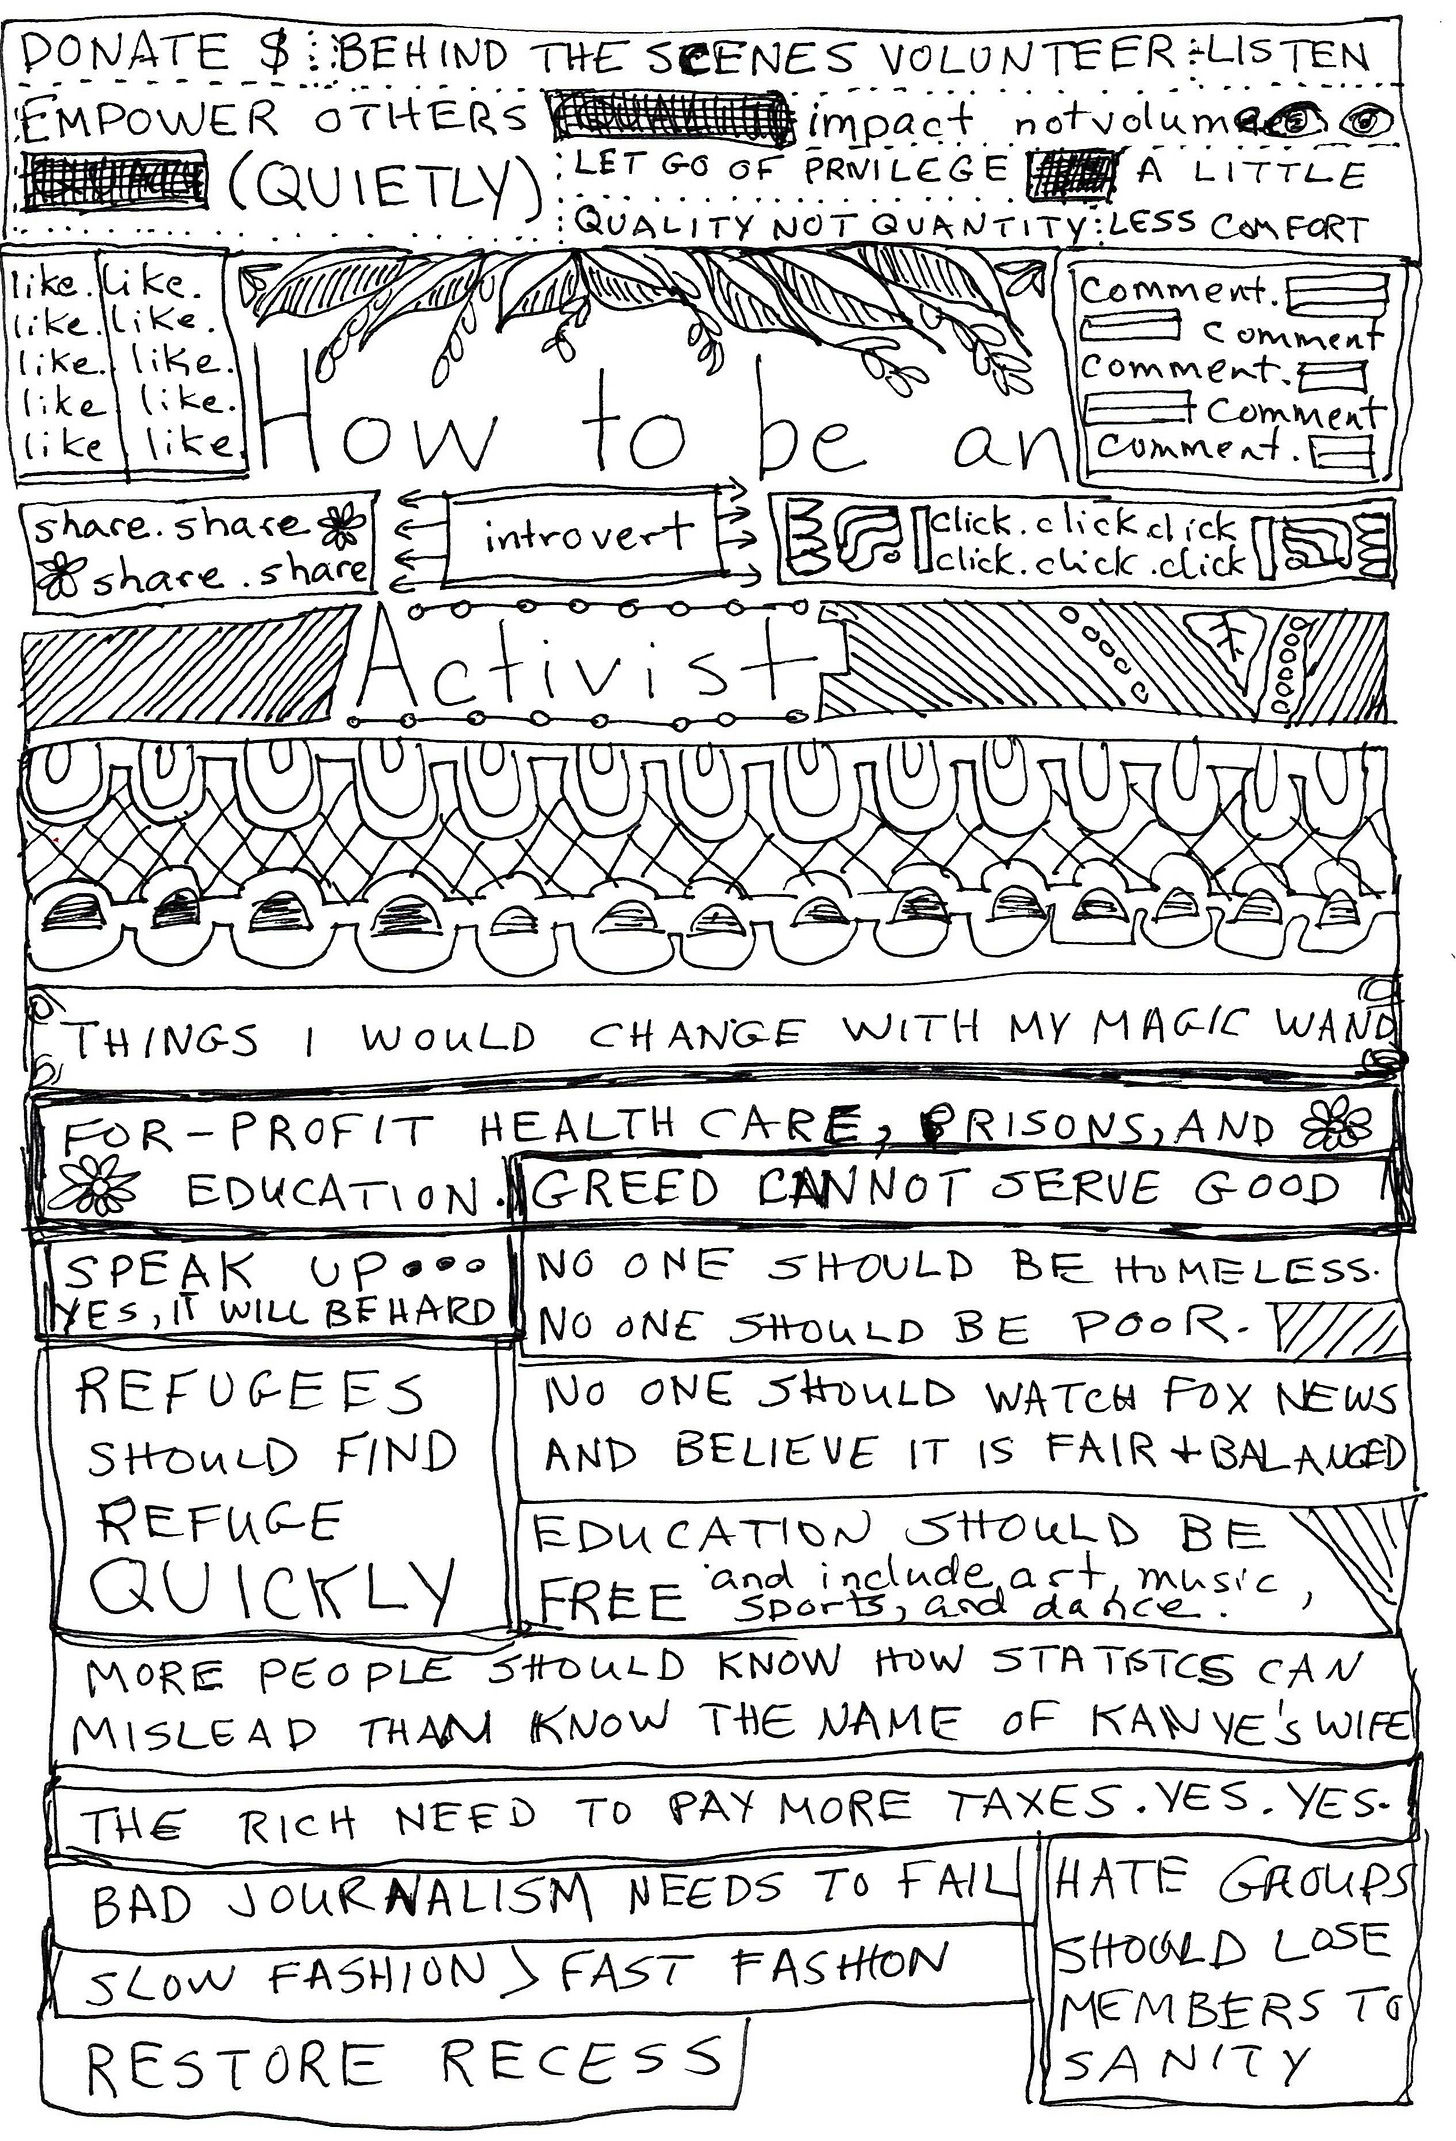 DONATE $ BEHIND THE SCENES VOLUNTEER LISTEN
EMPOWER OTHERS impact not volume
(QUIETLY)
LET GO OF PRIVILEGE A LITTLE
QUALITY NOT QUANTITY LESS COMFORT
like. like.
like. like.
like. like.
like like.
like like.
How to be an
Comment.
Comment
Comment.
Comment
Comment.
share. share
share. share
introvert
click. click click
click. click. click
Activist
THINGS I WOULD CHANGE WITH MY MAGIC WAND
FOR-PROFIT HEALTH CARE, PRISONS, AND
EDUCATION.
GREED CANNOT SERVE GOOD
SPEAK UP...
YES, IT WILL BE HARD
NO ONE SHOULD BE HOMELESS.
NO ONE SHOULD BE POOR.
REFUGEES
SHOULD FIND
REFUGE
QUICKLY
NO ONE SHOULD WATCH FOX NEWS
AND BELIEVE IT IS FAIR + BALANCED
EDUCATION SHOULD BE
FREE and include art, music,
sports, and dance.
MORE PEOPLE SHOULD KNOW HOW STATISTCS CAN
MISLEAD THAN KNOW THE NAME OF KANYE'S WIFE
THE RICH NEED TO PAY MORE TAXES. YES. YES.
BAD JOURNALISM NEEDS TO FAIL
SLOW FASHION > FAST FASHION
RESTORE RECESS
HATE GROUPS
SHOULD LOSE
MEMBERS TO
SANITY